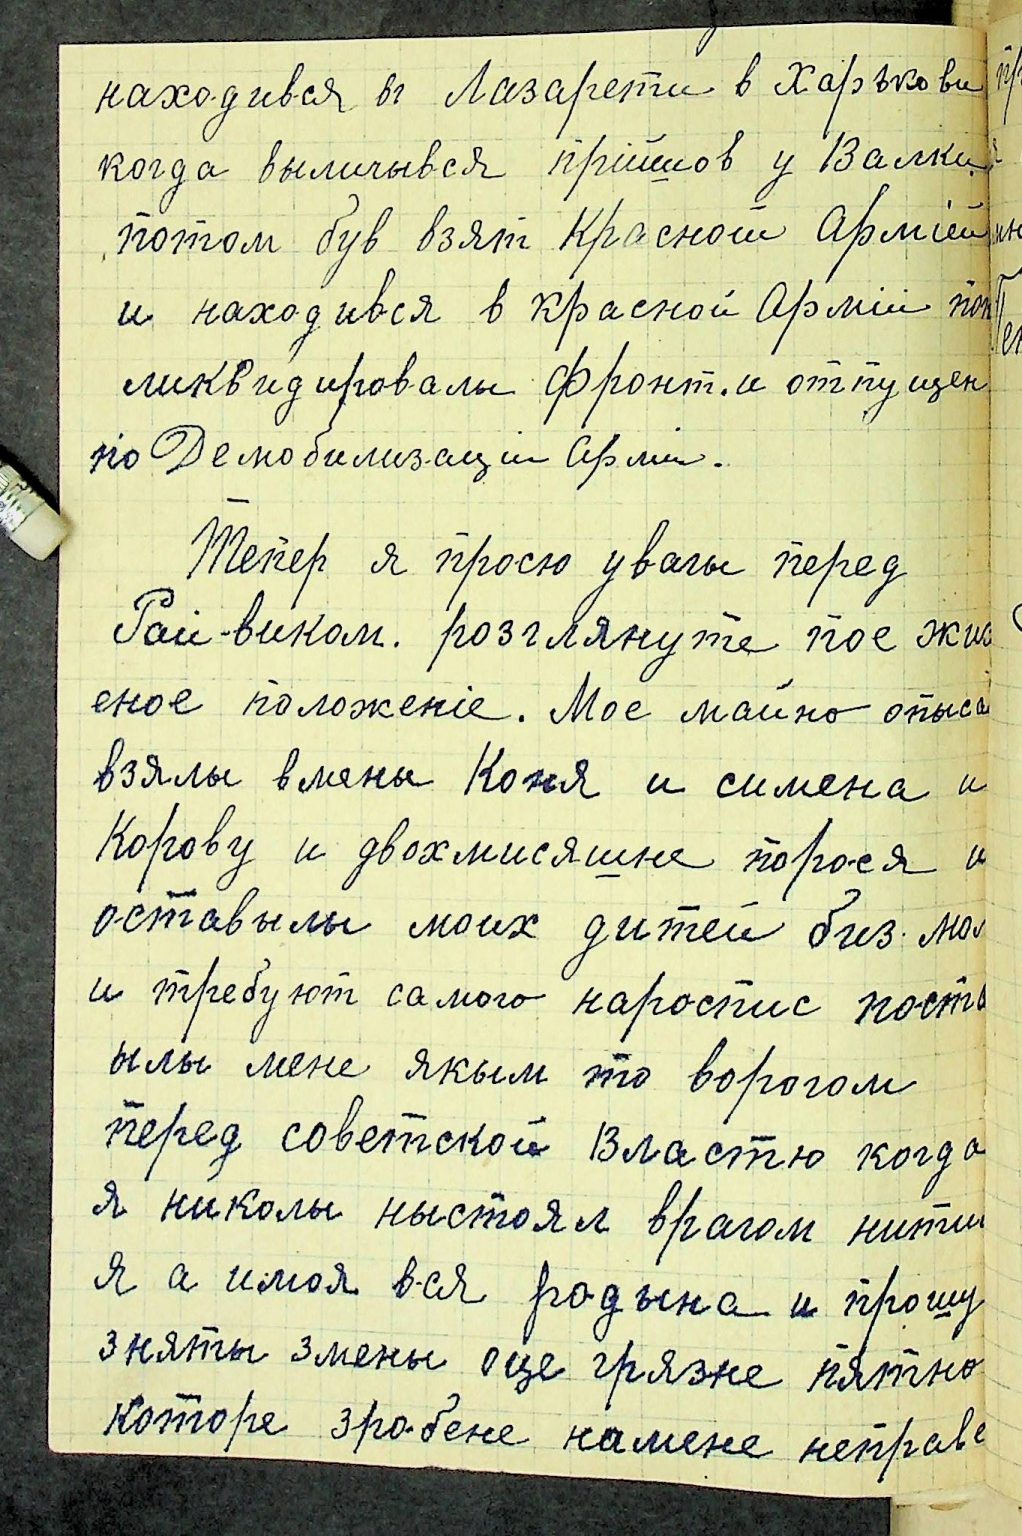 находився в Лазарети в Харькови
когда выличывся прійшов у Валки
потом був взят Красной Армій
и находився в красной Армій пок
ликвидировалы фронт. и отпущен
по Демобилизаціи Арміи.
Тепер я просю увагы перед
Рай-виком. розгляните мое жиз
еное положеніе. Мое майно описа
взялы вмены Коня и симена и
Корову и двохмисяшне порося и
оставылы моих дитей биз мол
и требуют самого наростис поста
ылы мене якым то ворогом
перед советской Властю когда
я николы ныстоял врагом ниты
я а имоя вся родына и прошу
зняты змены оце грязне пятно
которе зробене намене неправе